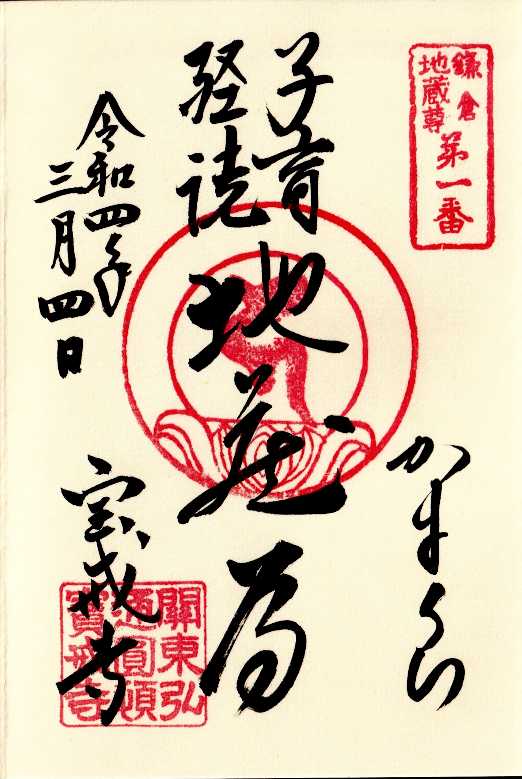 鎌倉
地蔵尊
第一番
かまくら
子育
経読
地蔵尊
令和四年
三月四日
宝戒寺
關東弘
通圓頓
寳戒寺